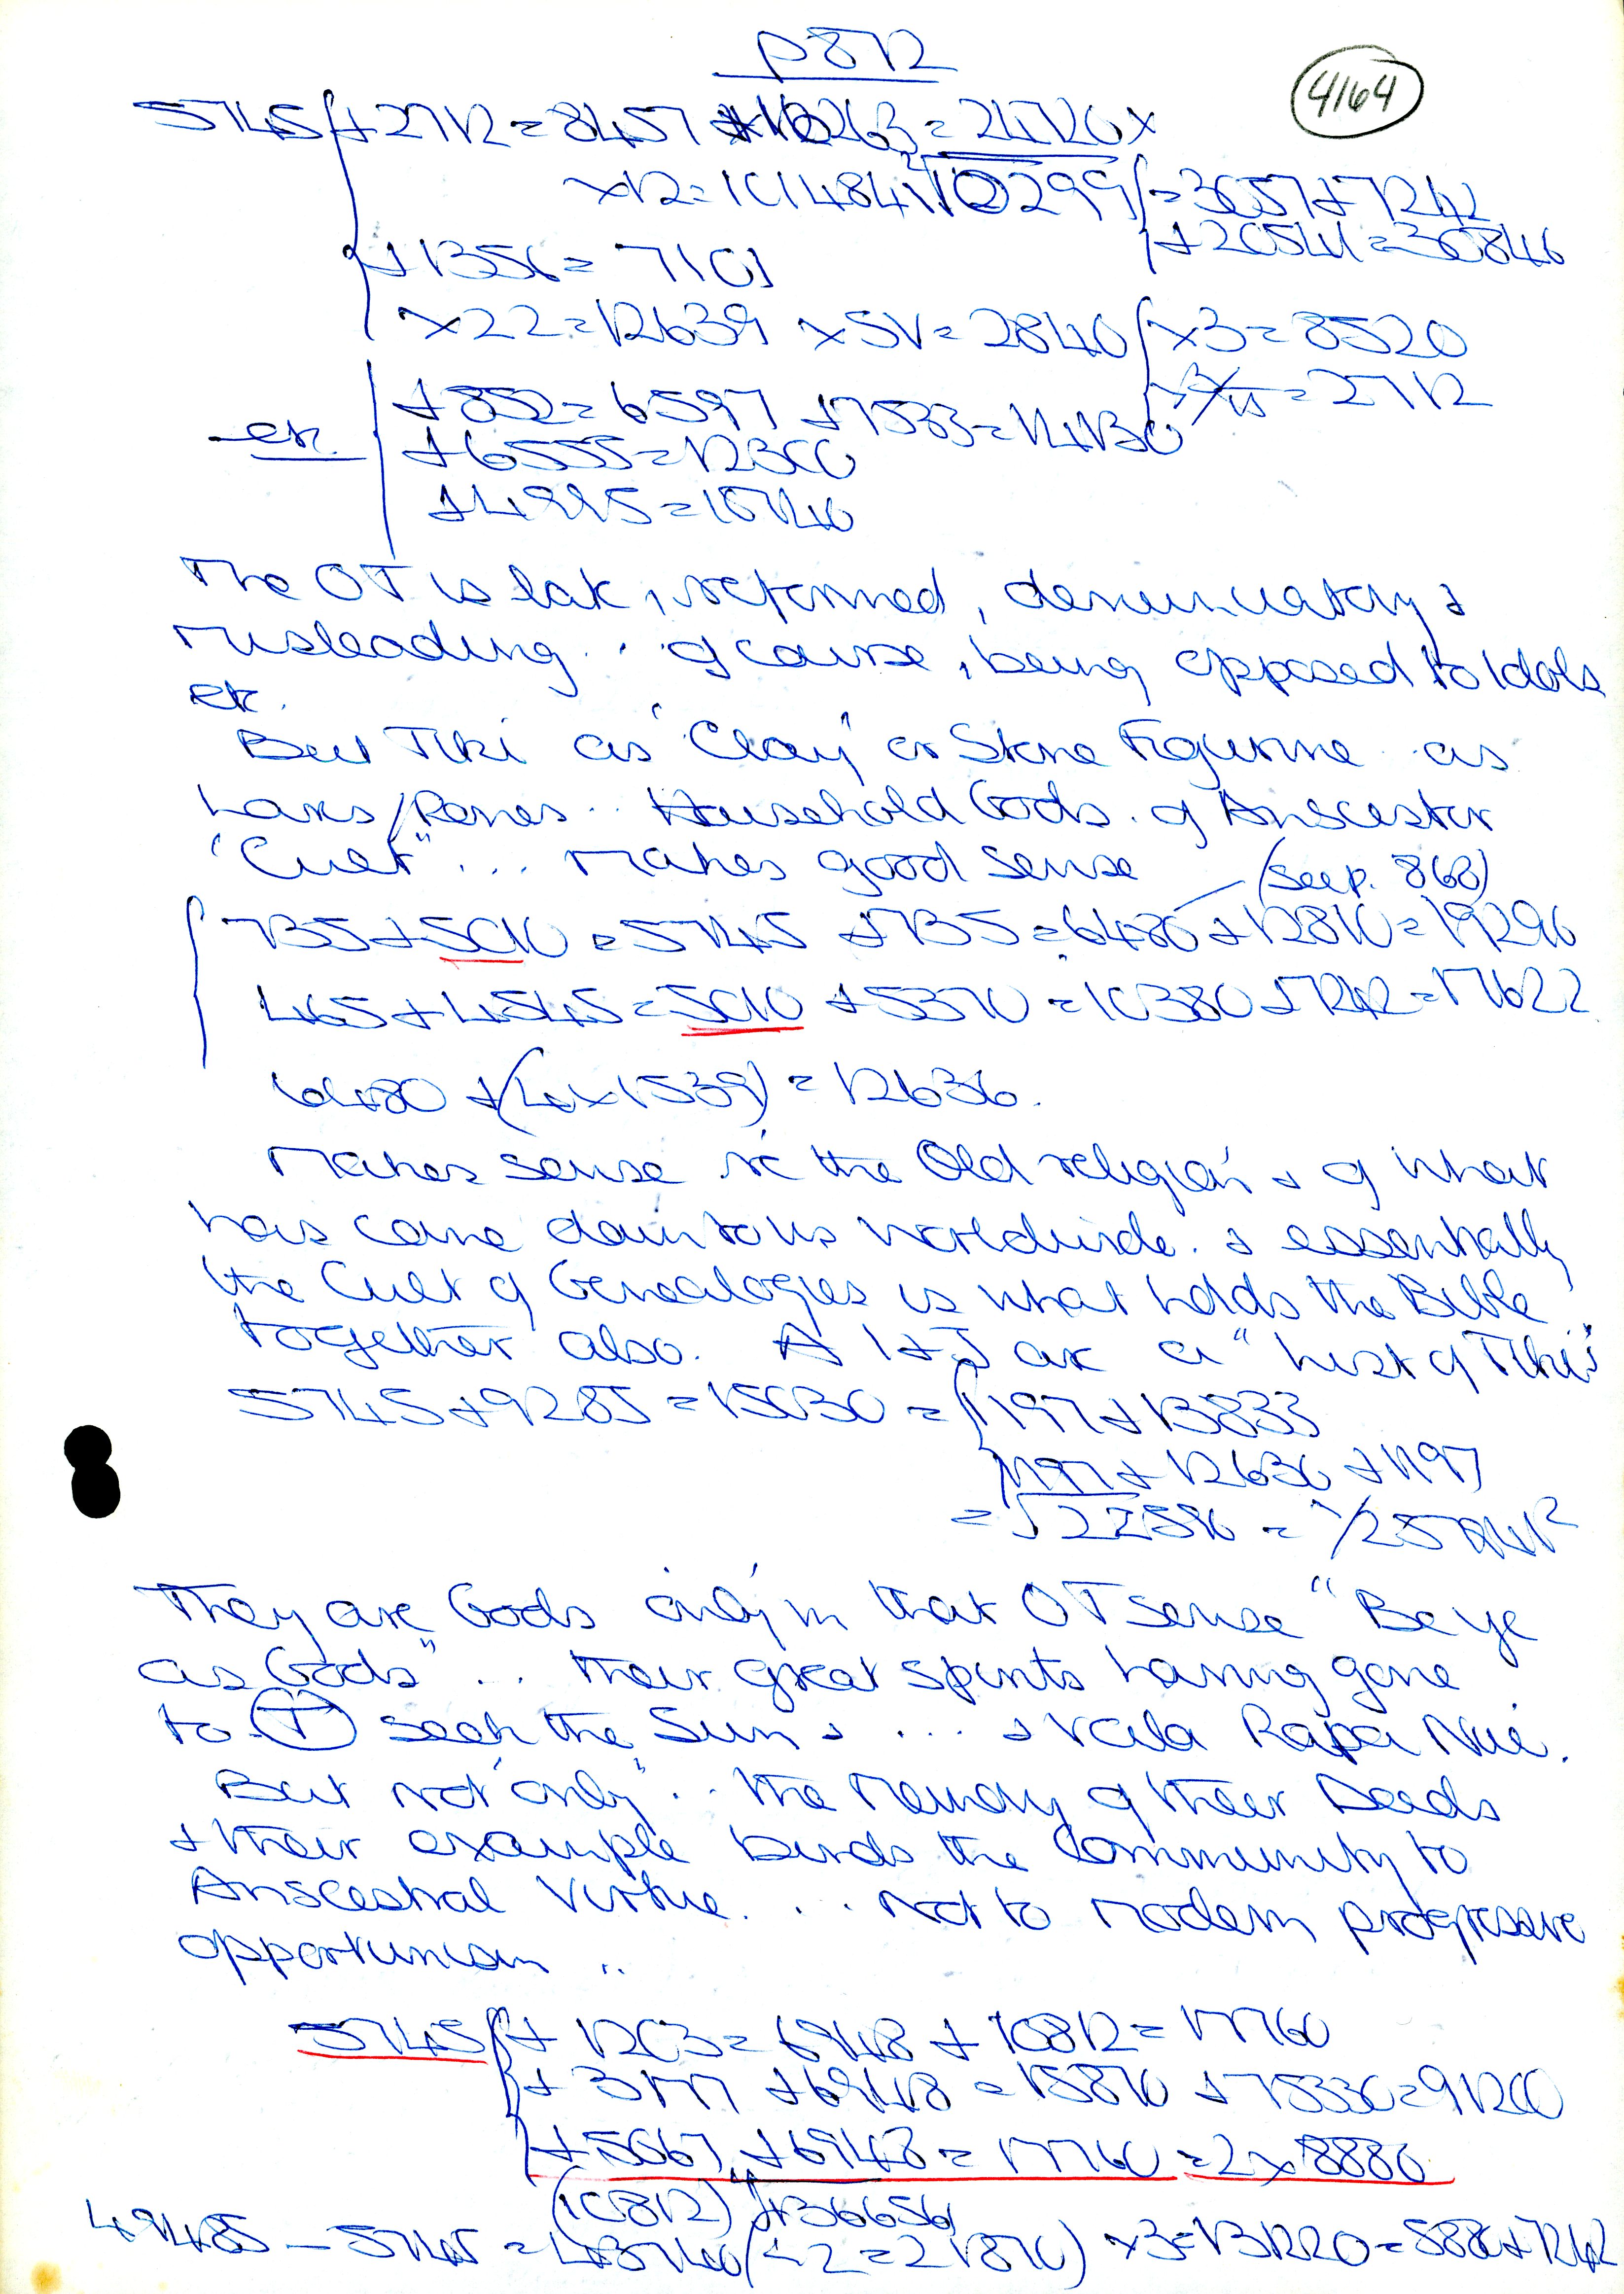 p 812
4164
5745 + 2712 = 8457 + 10263 = 21720 x
x12 = 101484 10299 = 3057 + 7242
+ 20541 = 30846
+ 1356 = 7101
x 22 = 12639 x 51 = 2840 x 3 = 8520
= 2712
+ 852 = 6597 + 7533 = 14130
etc.
+ 6555 = 12300
+ 4995 = 10740
The OT is late, reformed, denunciatory &
misleading .. of course, being opposed to Idols
etc.
But Tiki as 'Clay' or Stone Figurine as
Lares/Penes .. Household Gods. of Anscestor
"Cult" ... makes good sense (see p. 868)
735 + 5010 = 5745 + 735 = 6480 + 12810 = 19290
465 + 4545 = 5010 + 5370 = 10380 + 7242 = 17622
6480 + (4 x 1539) = 12636.
Makes sense re the 'Old religion' & of what
has come down to us worldwide. & essentially
the Cult of Genealogies is what holds the Bible
together also. A I & J are a "List of Tiki's"
5745 + 9285 = 15030 = 1197 + 13833
1197 + 12636 + 1197
They are Gods 'only' in that OT sense "Be ye
as Gods" .. their great spirits having gone
to (T) seek the Sun & ... & Vaila Rapa Nui.
But not 'only' .. the Memory of their Deeds
& their example binds the Community to
Anscestral Virtue. .. not to modern progressive
opportunism ..
5745 + 1203 = 6948 + 10812 = 17760
+ 3177 + 6948 = 15870 + 75330 = 91200
+ 5067 + 6948 = 17760 = 2 x 8880
(10812) + 36656
49485 - 5745 = 43740 (÷ 2 = 21870) x 3 = 131220 = 5880 + 7242